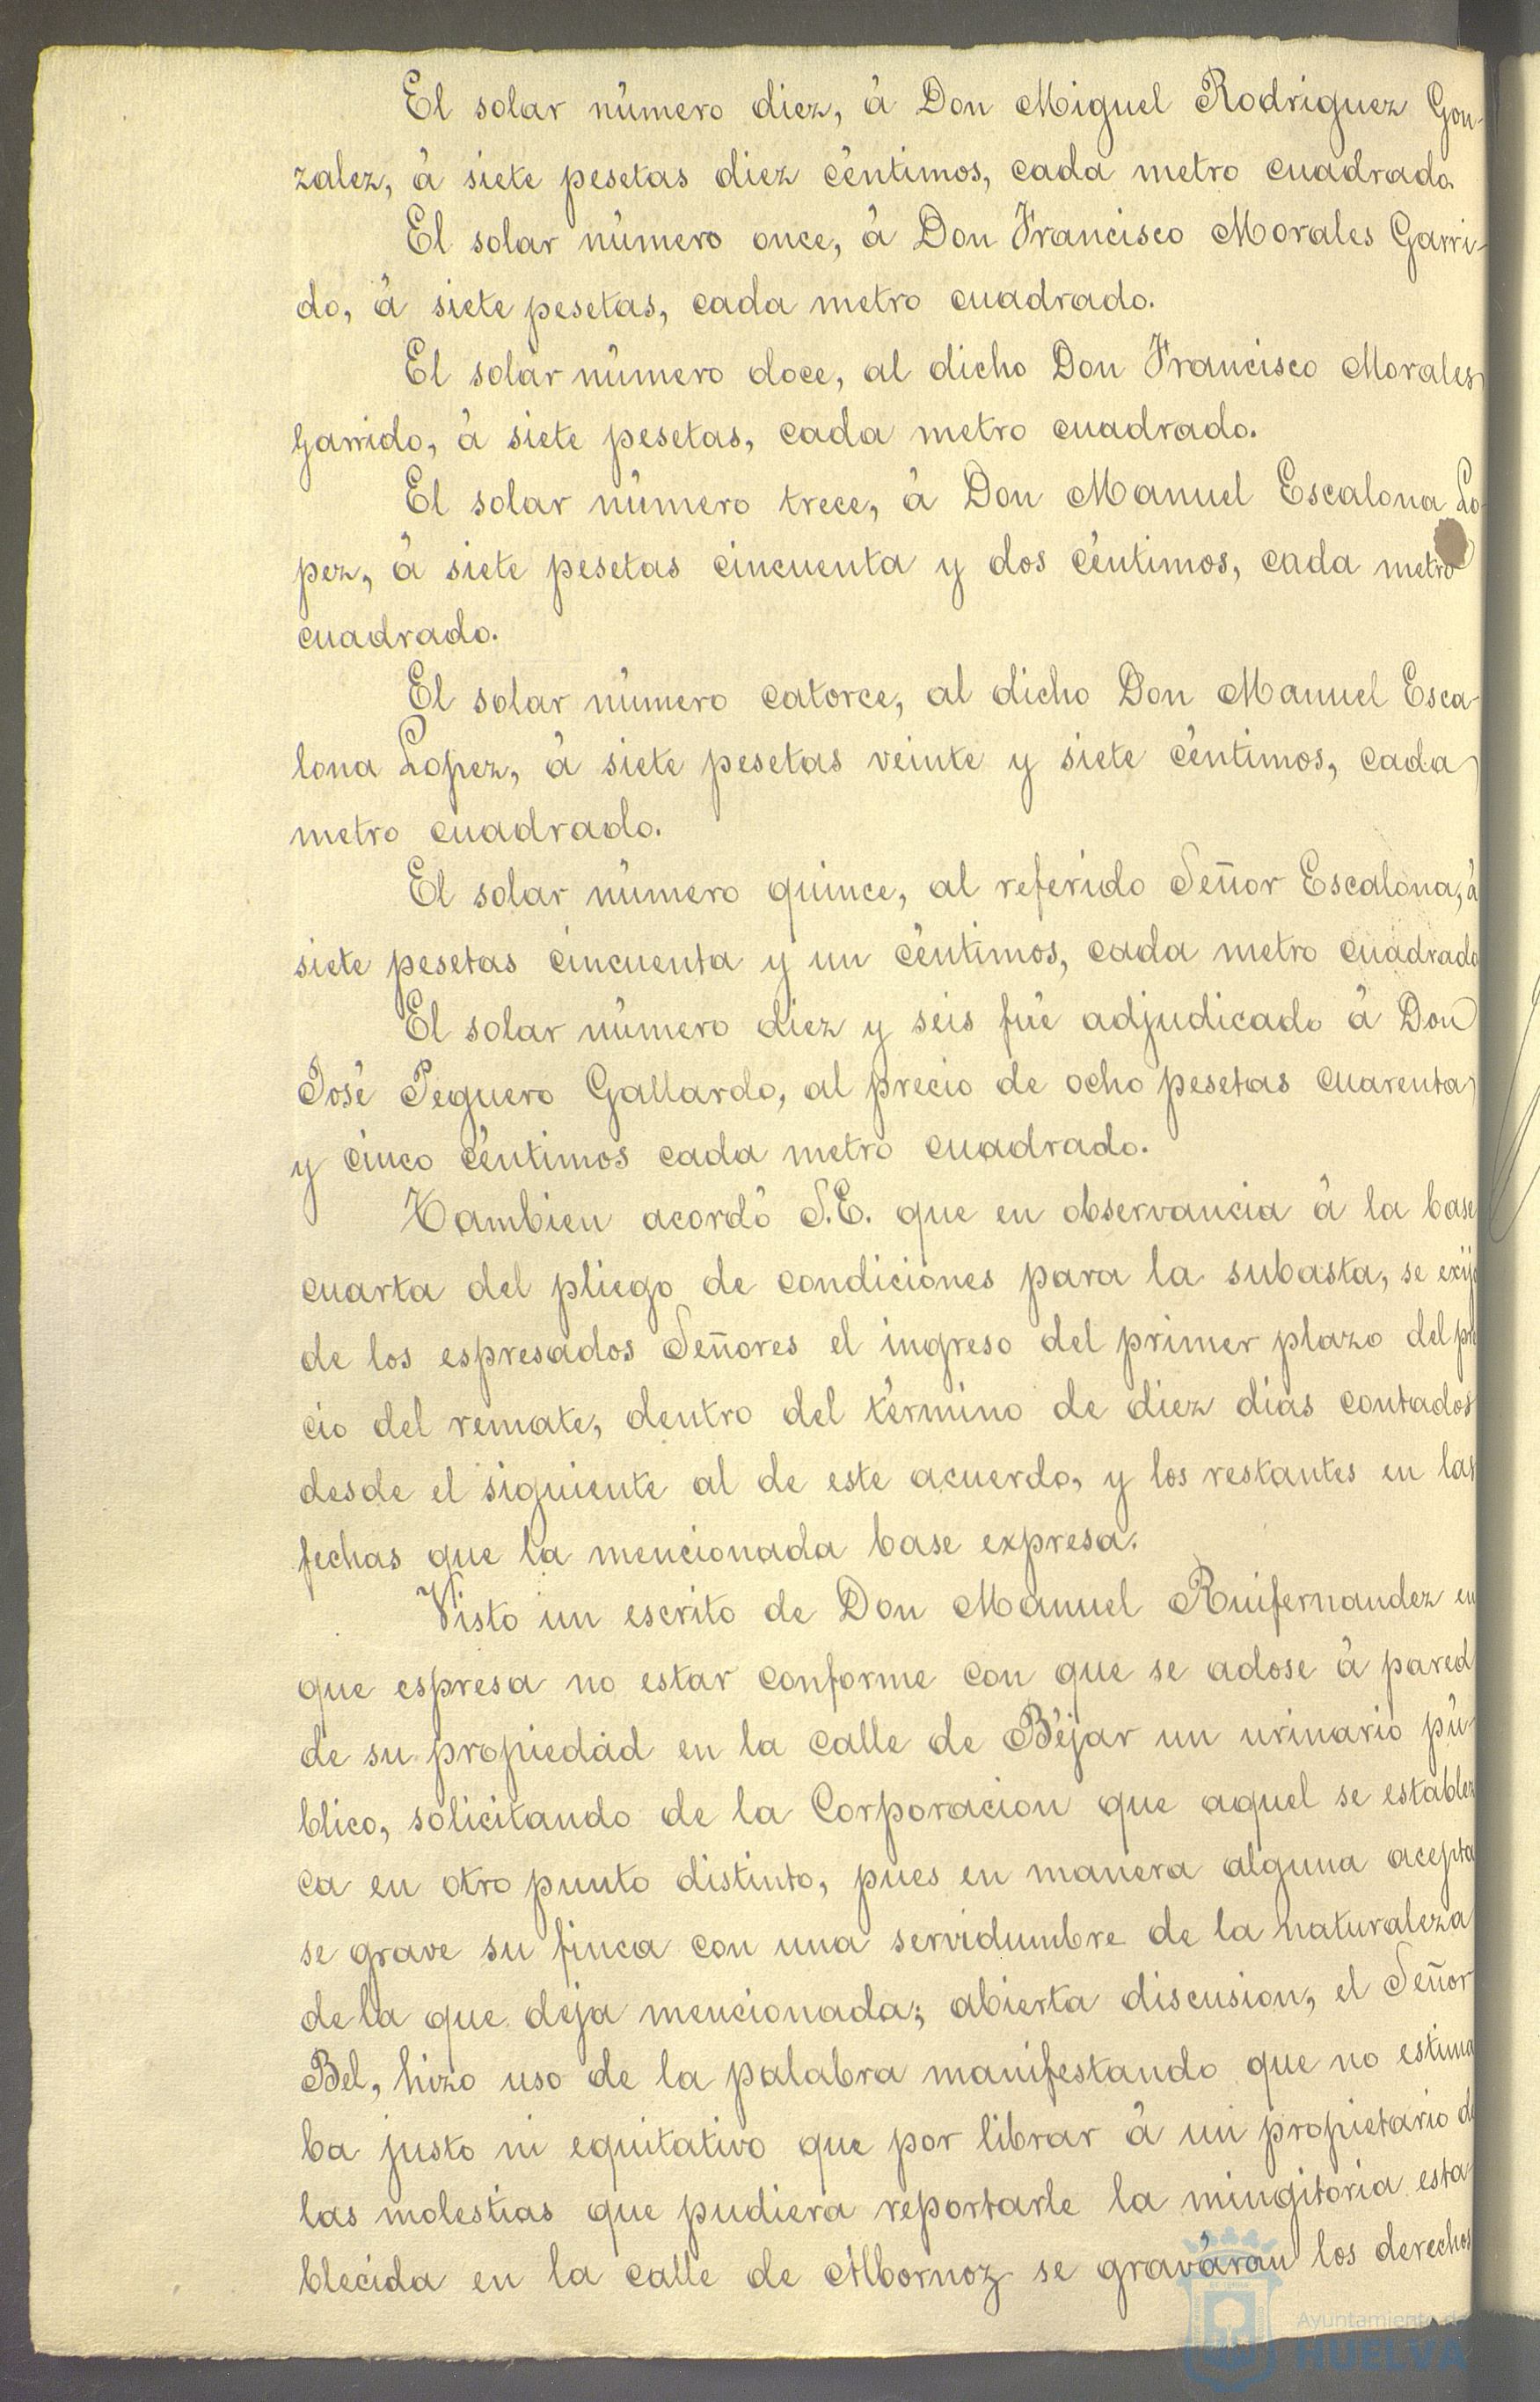 El solar número diez, á Don Miguel Rodriguez Gon-
zalez, á siete pesetas diez céntimos, cada metro cuadrado.
El solar número once, á Don Francisco Morales Garri-
do, á siete pesetas, cada metro cuadrado.
El solar número doce, al dicho Don Francisco Morales
Garrido, á siete pesetas, cada metro cuadrado.
El solar número trece, á Don Manuel Escalona Lo-
pez, á siete pesetas cincuenta y dos céntimos, cada metro
cuadrado.
El solar número catorce, al dicho Don Manuel Esca-
lona Lopez, á siete pesetas veinte y siete céntimos, cada
metro cuadrado.
El solar número quince, al referido Señor Escalona, á
siete pesetas cincuenta y un céntimos, cada metro cuadrado
El solar número diez y seis fué adjudicado á Don
José Peguero Gallardo, al precio de ocho pesetas cuarenta
y cinco céntimos cada metro cuadrado.
Tambien acordó S.E. que en observancia á la base
cuarta del pliego de condiciones para la subasta, se exij
de los espresados Señores el ingreso del primer plazo del pre
cio del remate, dentro del término de diez dias contados
desde el siguiente al de este acuerdo, y los restantes en las
fechas que la mencionada base expresa.
Visto un escrito de Don Manuel Ruifernandez en
que espresa no estar conforme con que se adose á pared
de su propiedad en la calle de Béjar un urinario pú-
blico, solicitando de la Corporacion que aquel se establez
ca en otro punto distinto, pues en manera alguna acepta
se grave su finca con una servidumbre de la naturaleza
de la que deja mencionada; abierta discusion, el Señor
Bel, hizo uso de la palabra manifestando que no estima
ba justo ni equitativo que por librar á un propietario de
las molestias que pudiera reportarle la mingitoria esta-
blecida en la calle de Albornoz se graváran los derechos
Ayuntamiento de
HUELVA